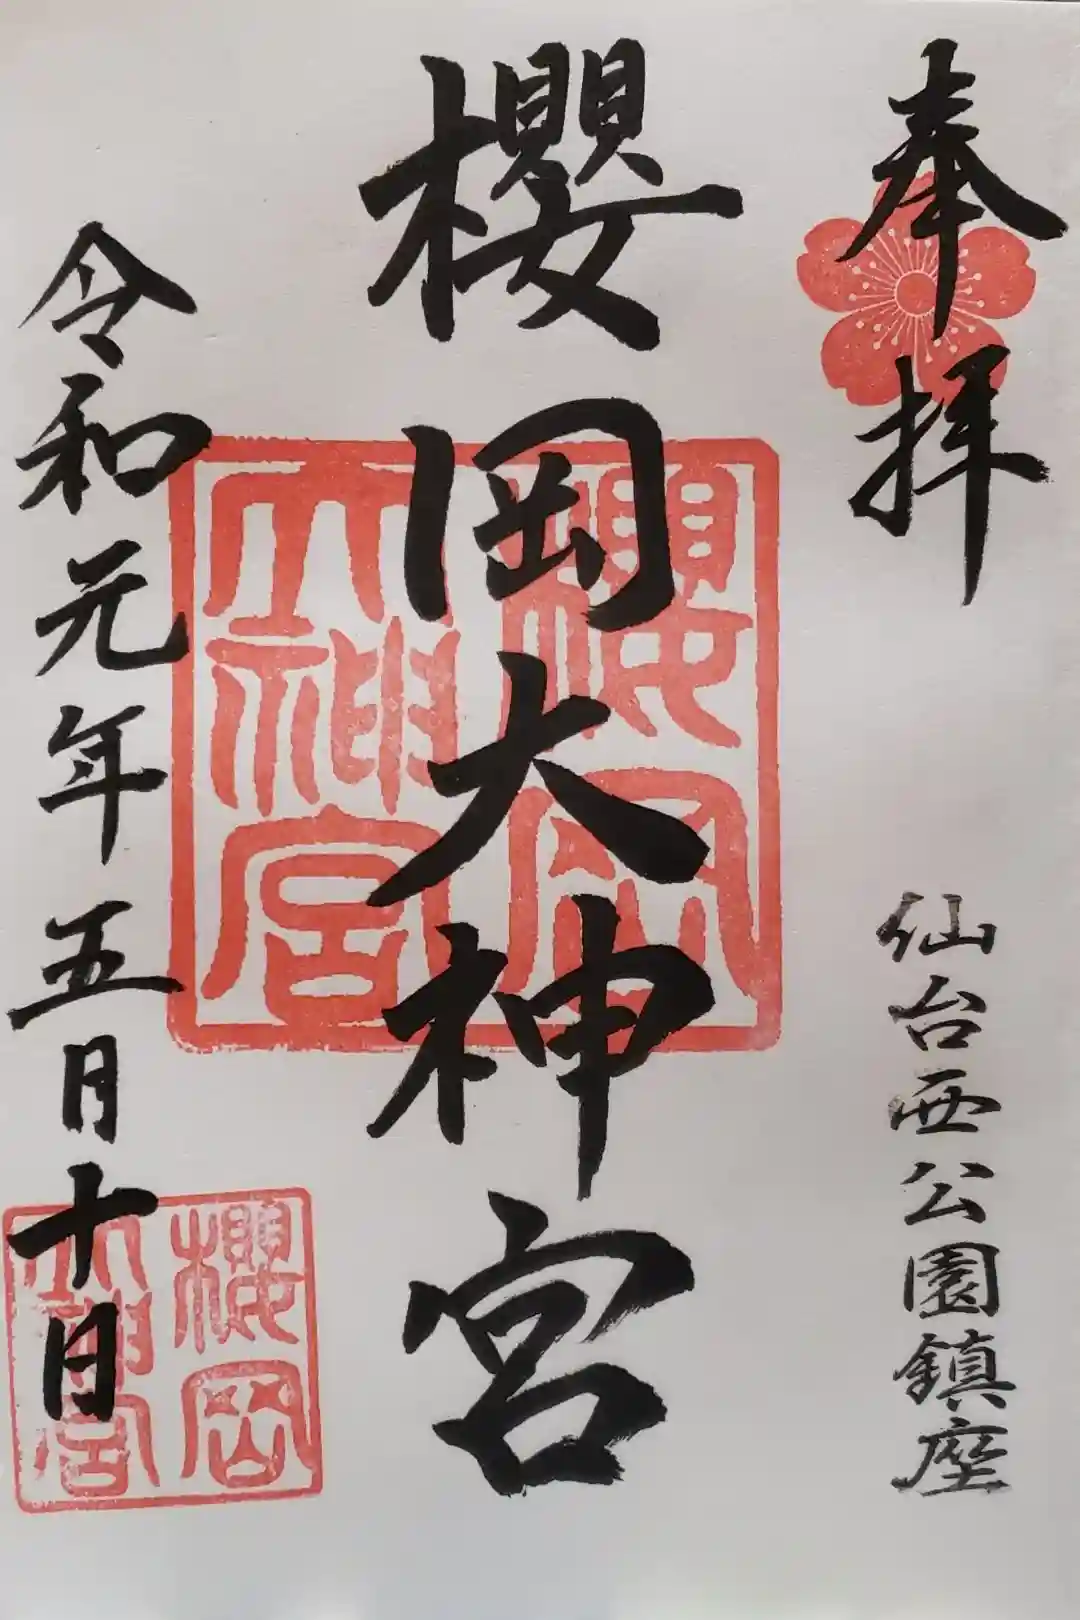 奉拝
仙台西公園鎮座
櫻岡大神宮
令和元年五月十日
櫻岡
大神宮
櫻岡
大神宮